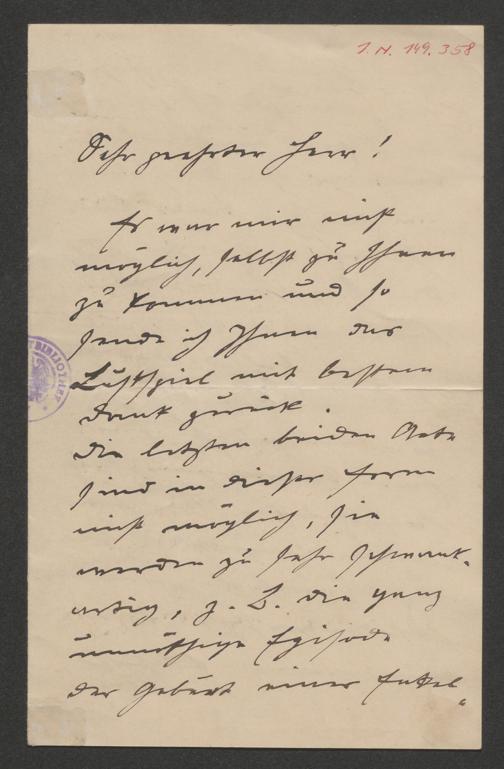 I. N. 149.358
Sehr geehrter Herr!
Es war mir nicht
möglich, selbst zu Ihnen
zu kommen und so
sende ich Ihnen das
Lustspiel mit bestem
Dank zurück.
Die letzten beiden Acte
sind in dieser Form
nicht möglich, sie
werden zu sehr schwank-
artig, z. B. die ganz
unnöthige Episode
der Geburt einer Enkel-
TBIBLIOTHEK